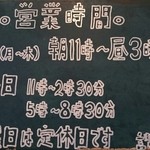 ○営業時間○
(月～木) 朝11時～昼3時
日 11時～2時30分
5時～8時30分
曜日は定休日です